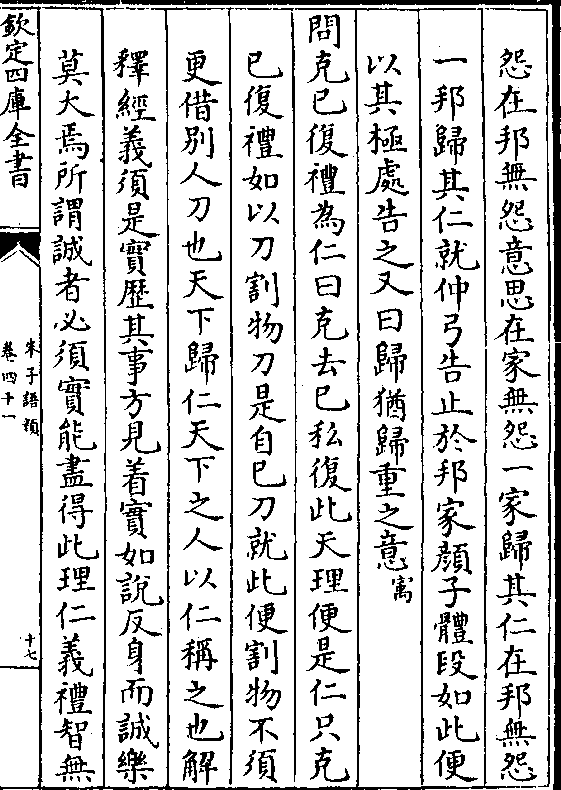 怨在邦無怨意思在家無怨一家歸其仁在邦無怨
一邦歸其仁就仲弓告止於邦家顔子體段如此便
以其極處告之又曰歸猶歸重之意寓
問克已復禮為仁曰克去已私復此天理便是仁只克
已復禮如以刀割物刀是自已刀就此便割物不須
更借別人刀也天下歸仁天下之人以仁稱之也解
釋經義須是實歷其事方見着實如說反身而誠樂
莫大焉所謂誠者必須實能盡得此理仁義禮智無
欽定四庫全書
朱子語類
卷四十一
十七